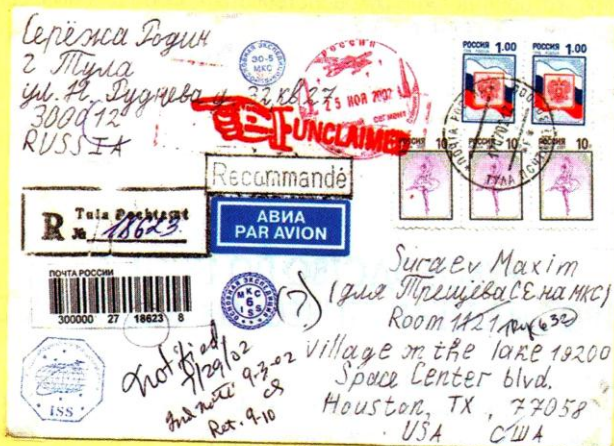 Серёжа Годин
г Тула
ул. Н. Руднева д. 32 кв 27
300012
RUSSIA
30-5
МКС
РОССИЯ
UNCLAIMED
РОССИЯ 1.00
РОССИЯ 1.00
РОССИЯ 10
10
10
ТУЛА
Recommandé
R Tula Pochtamt
№ 18623
АВИА
PAR AVION
ПОЧТА РОССИИ
300000 27 18623 8
МКС
6
ISS
(?)
ISS
Notified
7/29/02
2nd note 9-3-02
Ret. 9-10
Suraev Maxim
(для Трещёва С.Е на МКС)
Room 1121
Village on the lake 19200
Space Center blvd.
Houston, TX, 77058
USA США